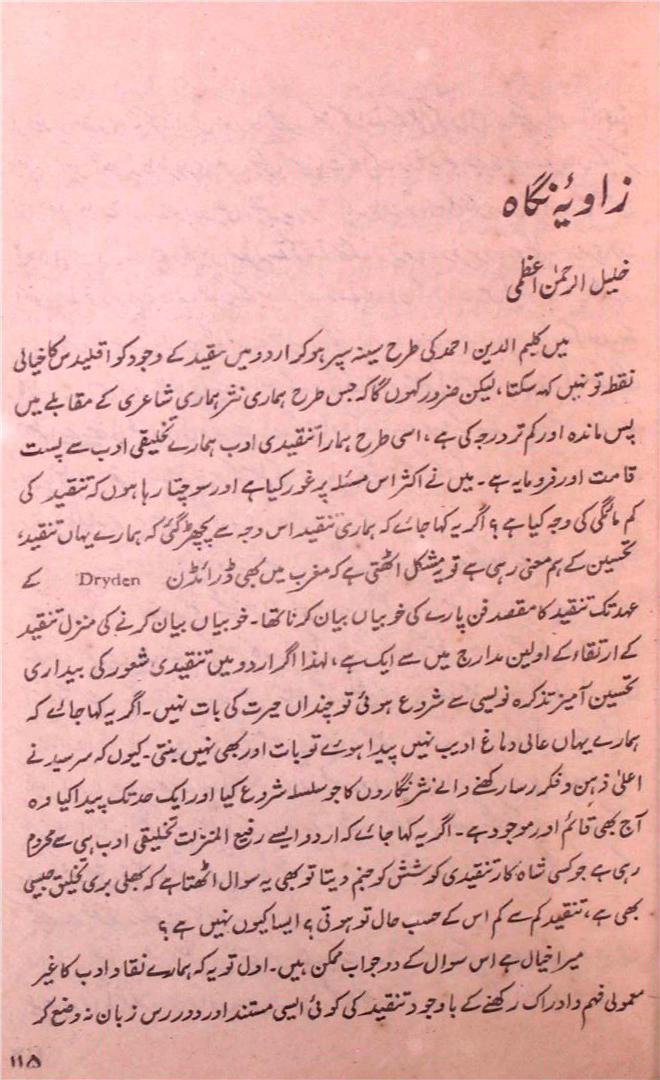 زاویۂ نگاہ
خلیل الرحمٰن اعظمی
میں کلیم الدین احمد کی طرح سینہ سپر ہو کر اردو میں تنقید کے وجود کو اقلیدس کا خیالی
نقطہ تو نہیں کہہ سکتا، لیکن ضرور کہوں گا کہ جس طرح ہماری نثر ہماری شاعری کے مقابلے میں
پس ماندہ اور کم تر درجہ کی ہے، اسی طرح ہمارا تنقیدی ادب ہمارے تخلیقی ادب سے پست
قامت اور فرومایہ ہے۔ میں نے اکثر اس مسئلہ پر غور کیا ہے اور سوچتا رہا ہوں کہ تنقید کی
کم مائگی کی وجہ کیا ہے؟ اگر یہ کہا جائے کہ ہماری تنقید اس وجہ سے پچھڑ گئی کہ ہمارے یہاں تنقید،
تحسین کے ہم معنی رہی ہے تو یہ مشکل اٹھتی ہے کہ مغرب میں بھی ڈرائڈن Dryden کے
عہد تک تنقید کا مقصد فن پارے کی خوبیاں بیان کرنا تھا۔ خوبیاں بیان کرنے کی منزل تنقید
کے ارتقاء کے اولین مدارج میں سے ایک ہے، لہٰذا اگر اردو میں تنقیدی شعور کی بیداری
تحسین آمیز تذکرہ نویسی سے شروع ہوئی تو چنداں حیرت کی بات نہیں۔ اگر یہ کہا جائے کہ
ہمارے یہاں عالی دماغ ادیب نہیں پیدا ہوئے تو بات اور بھی نہیں بنتی۔ کیوں کہ سرسید نے
اعلیٰ ذہن و فکر رسا رکھنے والے نثر نگاروں کا جو سلسلہ شروع کیا اور ایک حد تک پیدا کیا وہ
آج بھی قائم اور موجود ہے۔ اگر یہ کہا جائے کہ اردو ایسے رفیع المنزلت تخلیقی ادب ہی سے محروم
رہی ہے جو کسی شاہ کار تنقیدی کوشش کو جنم دیتا تو بھی یہ سوال اٹھتا ہے کہ بھلی بری تخلیق جیسی
بھی ہے، تنقید کم سے کم اس کے حسب حال تو ہوتی؟ ایسا کیوں نہیں ہے؟
میرا خیال ہے اس سوال کے دو جواب ممکن ہیں۔ اول تو یہ کہ ہمارے نقاد ادب کا غیر
معمولی فہم و ادراک رکھنے کے باوجود تنقید کی کوئی ایسی مستند اور دور رس زبان نہ وضع کر
۱۱۵